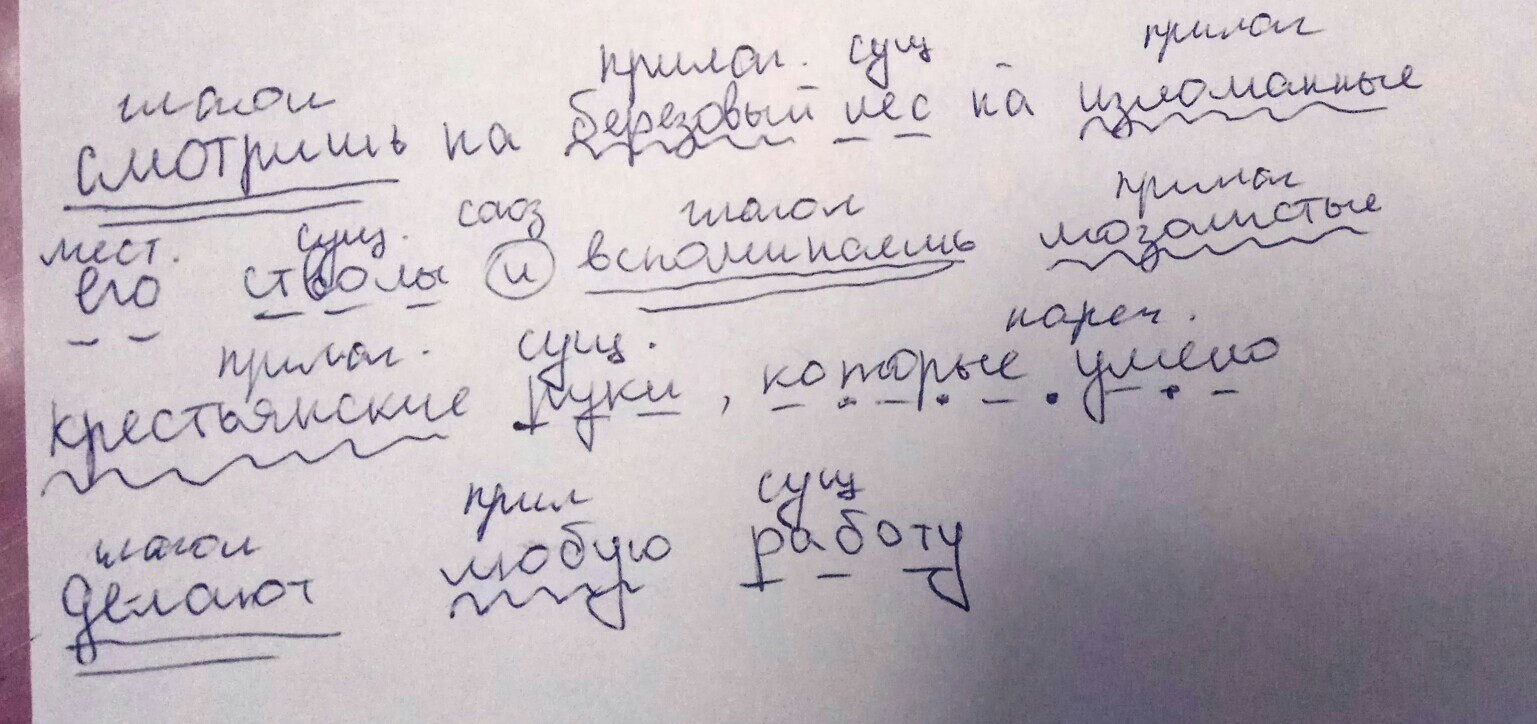 глагол прилаг. сущ прилаг
смотришь на березовый лес на изломанные
мест. сущ. союз глагол прилаг
его стволы и вспоминаешь мозолистые
прилаг. сущ. нареч.
крестьянские руки, которые умело
глагол прил сущ
делают любую работу